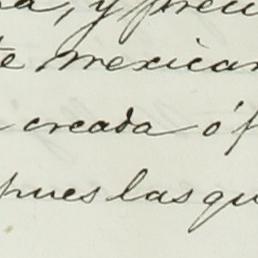 a, y precu
te mexican
creada ó f
pues las qu